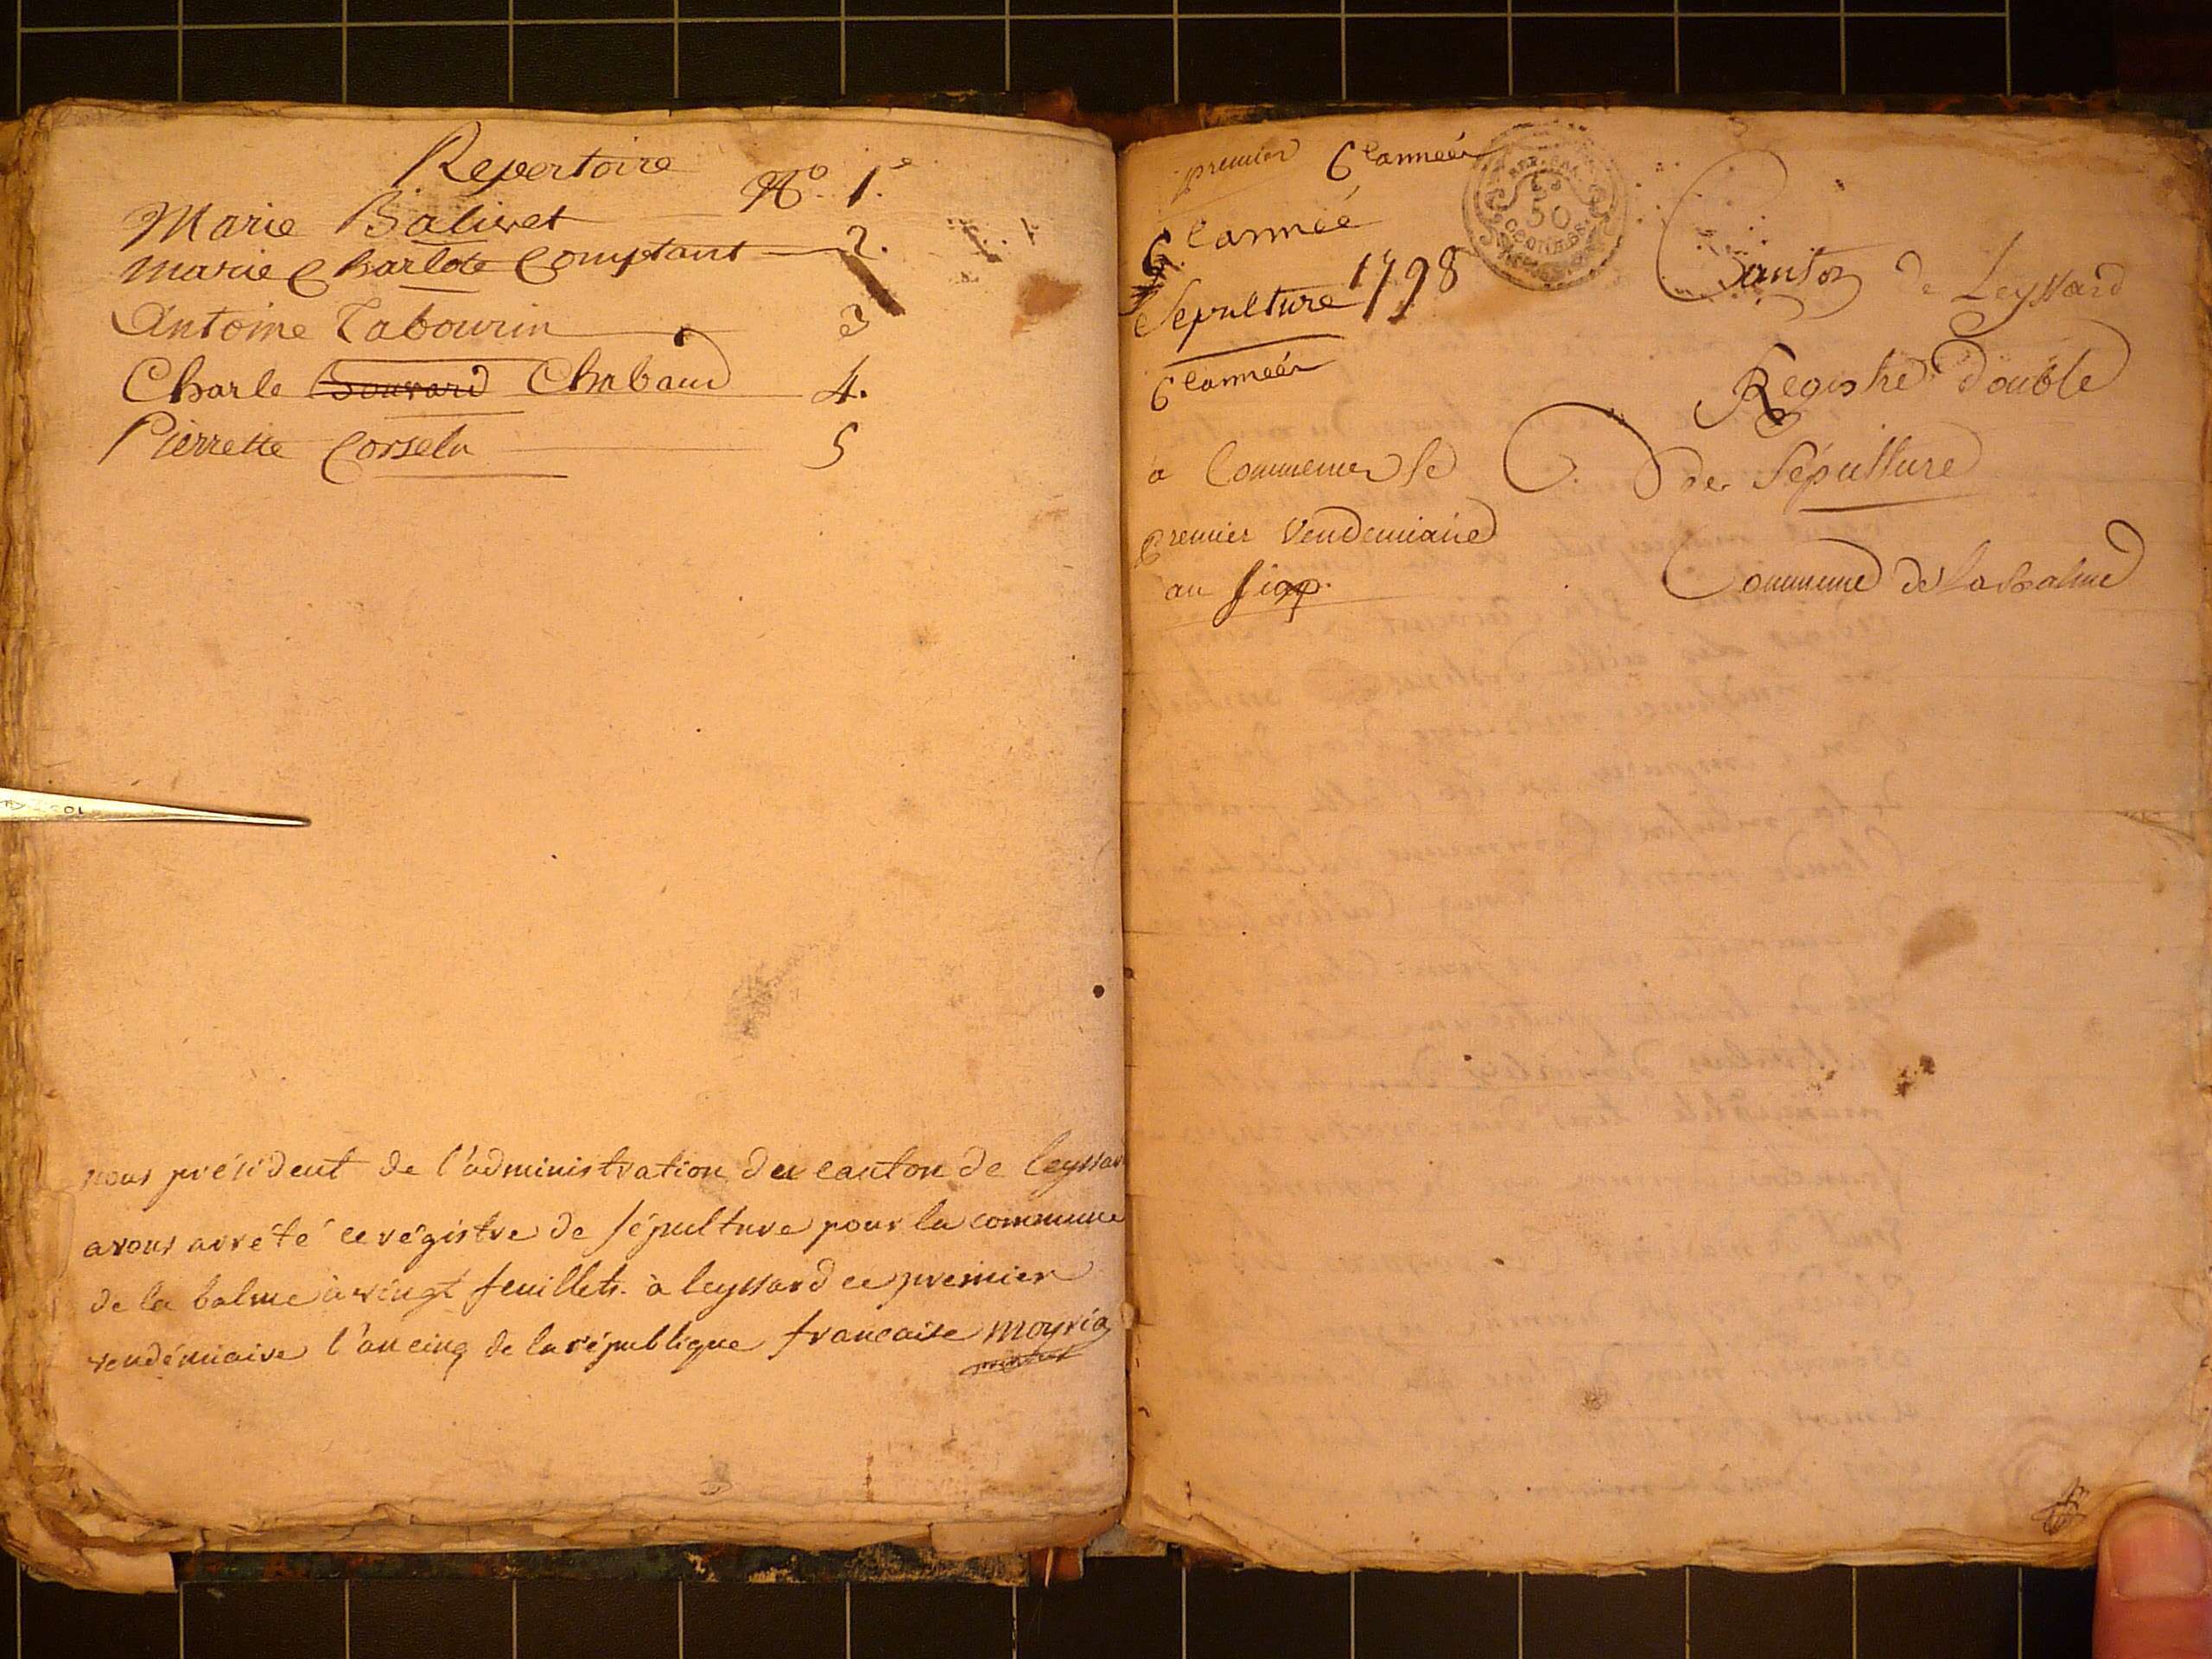 Repertoire
Marie Balivet No. 1.e
Marie Charlote Comptant 2.
Antoine Tabourin 3
Charle Bouvard Chabaud 4.
Pierrette Corselu 5
nous président de l'administration du canton de leyssar
avons arrété ce régistre de sépulture pour la commune
de la balme à vingt feuillets. à leyssard ce premier
vendémiaire l'an cinq de la république francaise moyria
premier 6 l'anneér
6. l'anneé
Sepulture 1798
6 l'anneér
à Commencer le
premier Vendemiaire
an Six.
50
Canton de Leyssard
Registre double
de Sépulture
Commune de la Balme